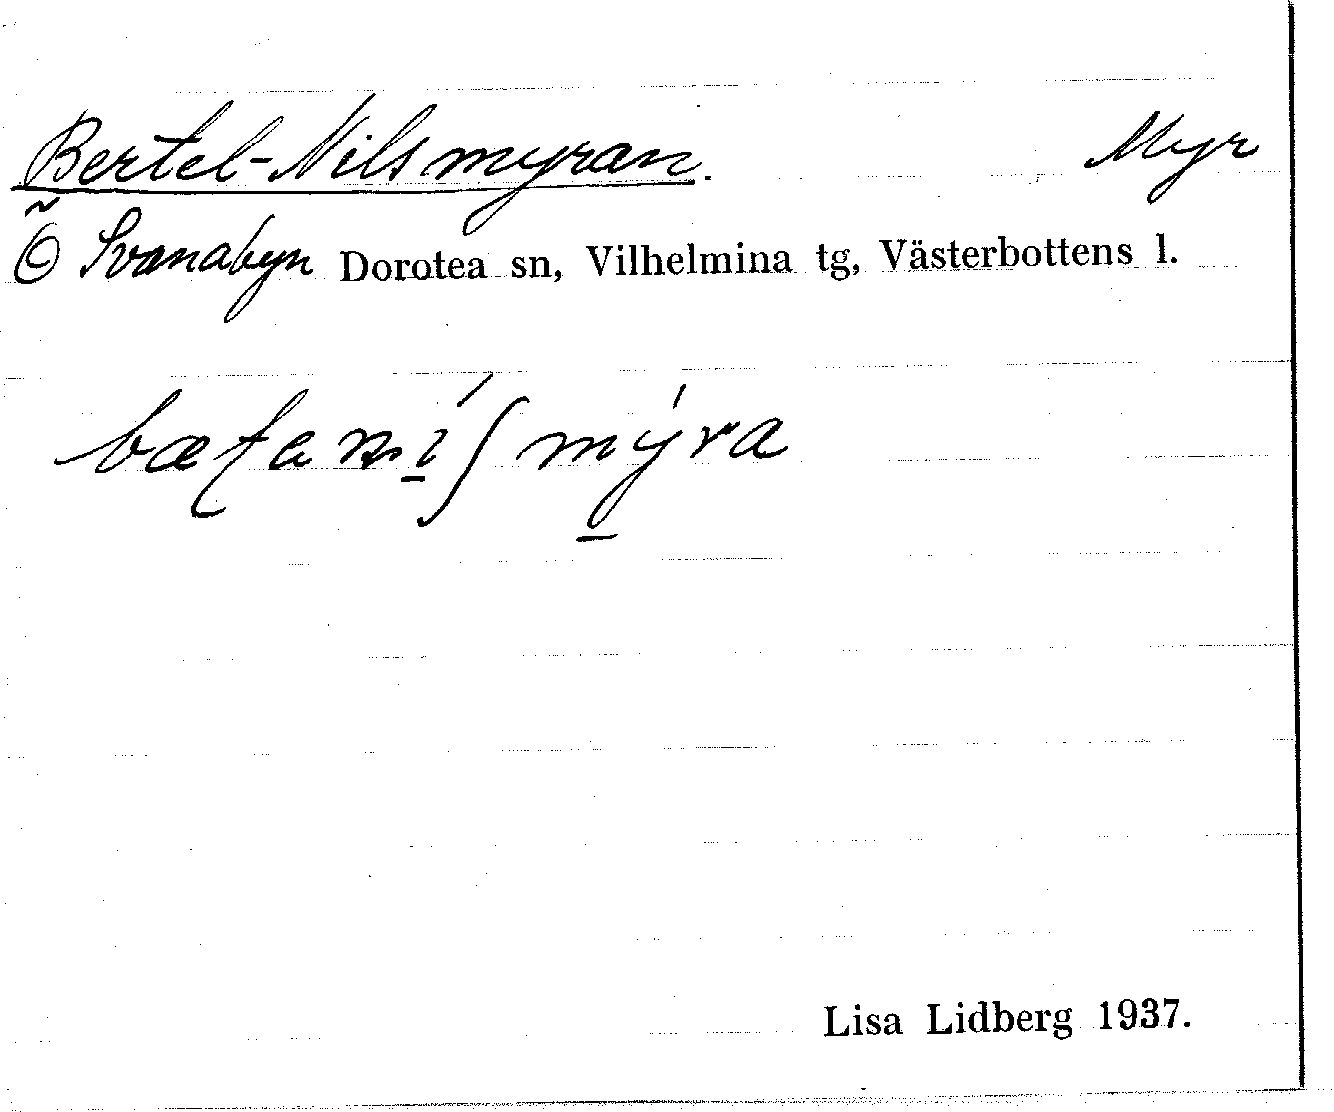 Bertel-Nilsmyran. Myr
Svanabyn Dorotea sn, Vilhelmina tg, Västerbottens l.
Lisa Lidberg 1937.